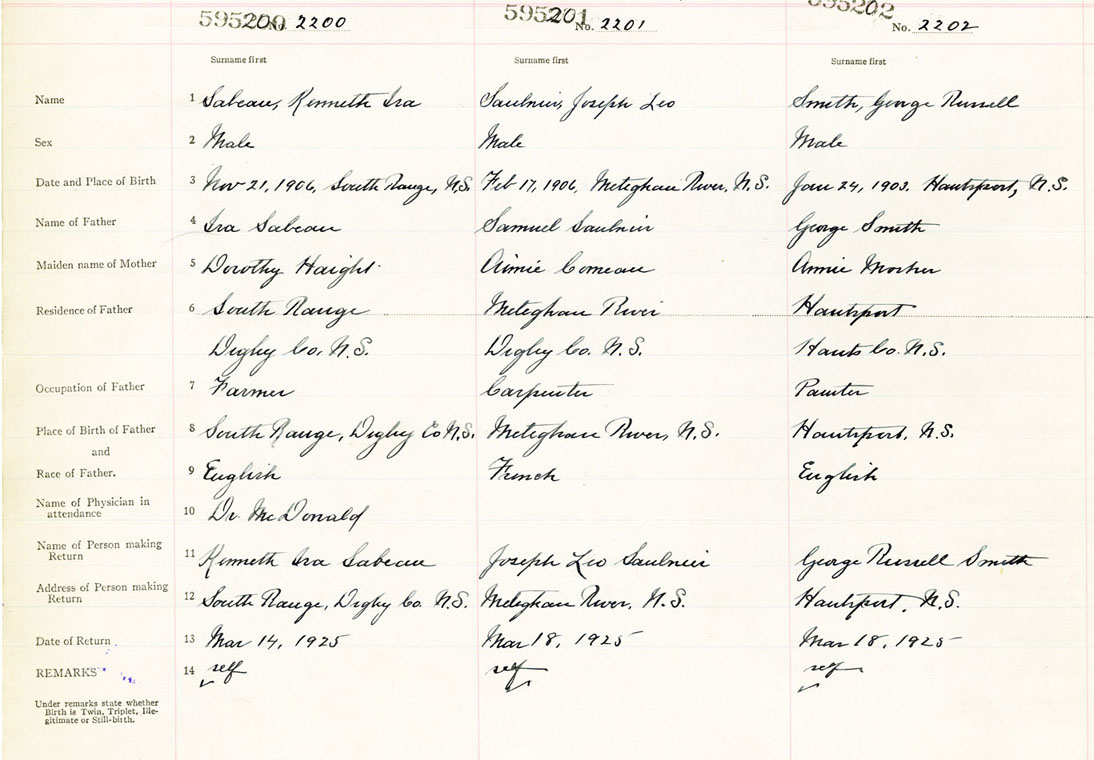 595200 No. 2200 595201 No. 2201 595202 No. 2202
Surname first Surname first Surname first
Name 1 Sabean, Kenneth Ira Saulnier, Joseph Leo Smith, George Russell
Sex 2 Male Male Male
Date and Place of Birth 3 Nov 21, 1906, South Range, N.S. Feb 17, 1906, Meteghan River, N.S. Jan 24, 1903. Hantsport, N.S.
Name of Father 4 Ira Sabean Samuel Saulnier George Smith
Maiden name of Mother 5 Dorothy Haight Aimie Comeau Annie Mosher
Residence of Father 6 South Range Meteghan River Hantsport
Digby Co. N.S. Digby Co. N.S. Hants Co. N.S.
Occupation of Father 7 Farmer Carpenter Painter
Place of Birth of Father 8 South Range, Digby Co N.S. Meteghan River, N.S. Hantsport, N.S.
and
Race of Father. 9 English French English
Name of Physician in
attendance 10 Dr. McDonald
Name of Person making
Return 11 Kenneth Ira Sabean Joseph Leo Saulnier George Russell Smith
Address of Person making
Return 12 South Range, Digby Co. N.S. Meteghan River, N.S. Hantsport, N.S.
Date of Return 13 Mar 14, 1925 Mar 18, 1925 Mar 18, 1925
REMARKS 14 self self self
Under remarks state whether
Birth is Twin, Triplet, Ille-
gitimate or Still-birth.